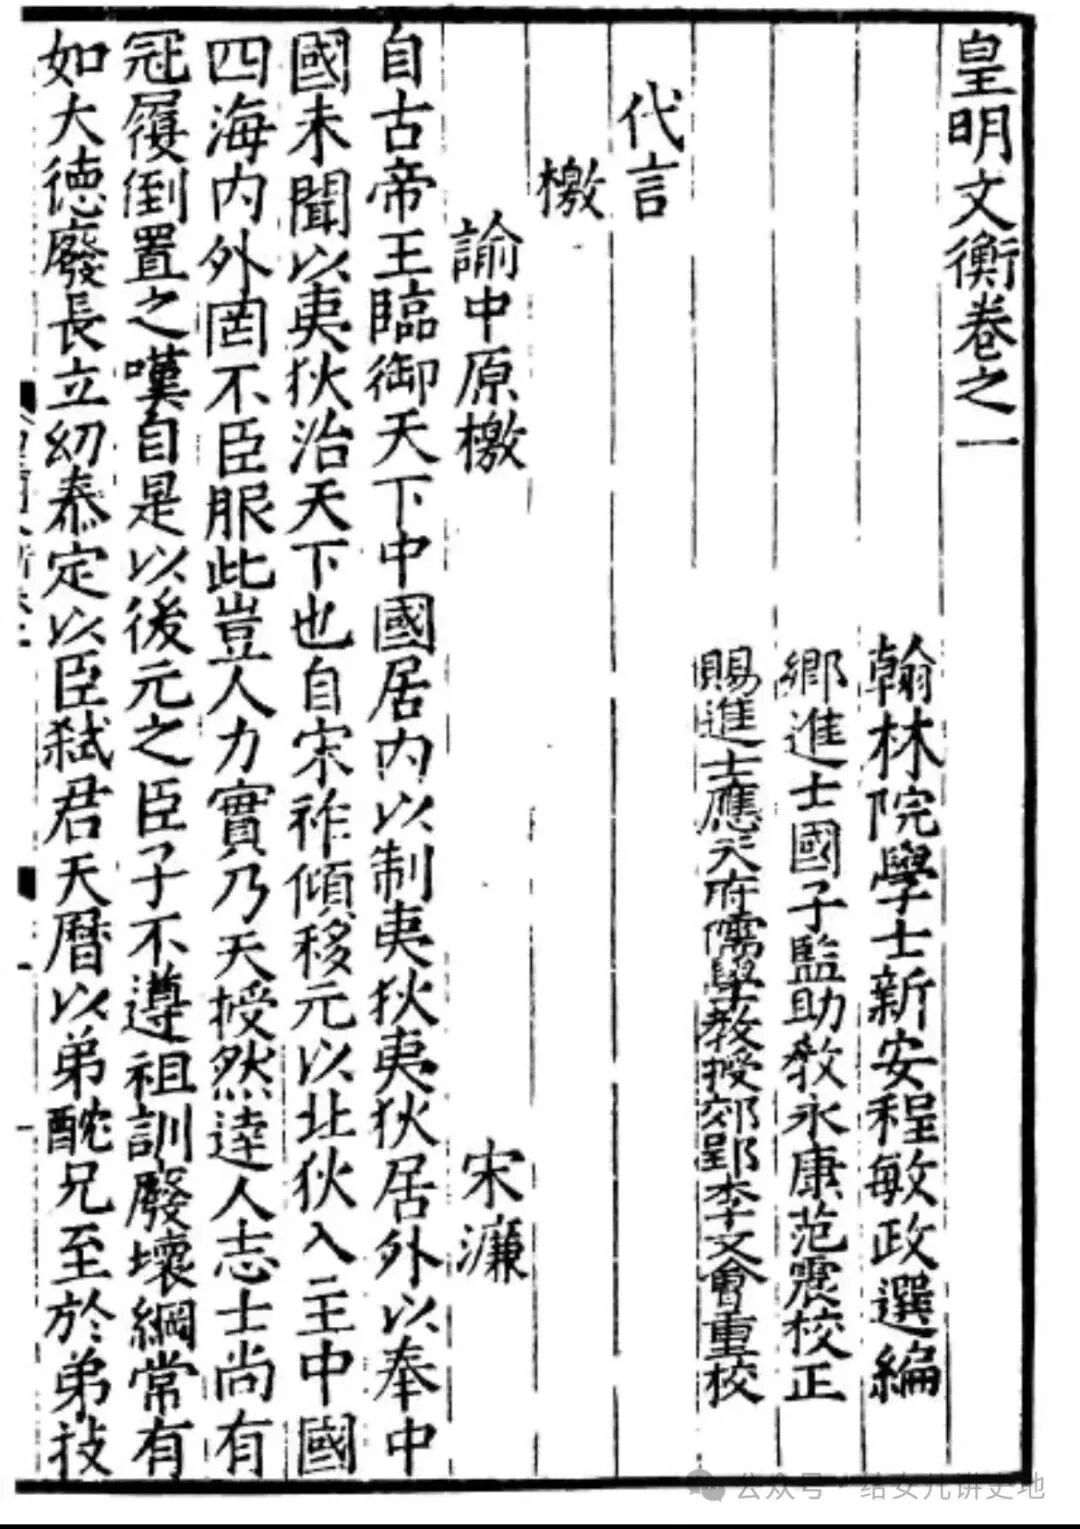 皇明文衡卷之一
翰林院學士新安程敏政選編
鄉進士國子監助教永康范震校正
賜進士應天府儒學教授郊郢李文會重校
代言
檄
諭中原檄 宋濂
自古帝王臨御天下中國居内以制夷狄夷狄居外以奉中
國未聞以夷狄治天下也自宋祚傾移元以北狄入主中國
四海内外罔不臣服此豈人力實乃天授然達人志士尚有
冠履倒置之嘆自是以後元之臣子不遵祖訓廢壞綱常有
如大德廢長立幼泰定以臣弑君天曆以弟酖兄至於弟
公众号·给女儿讲史地